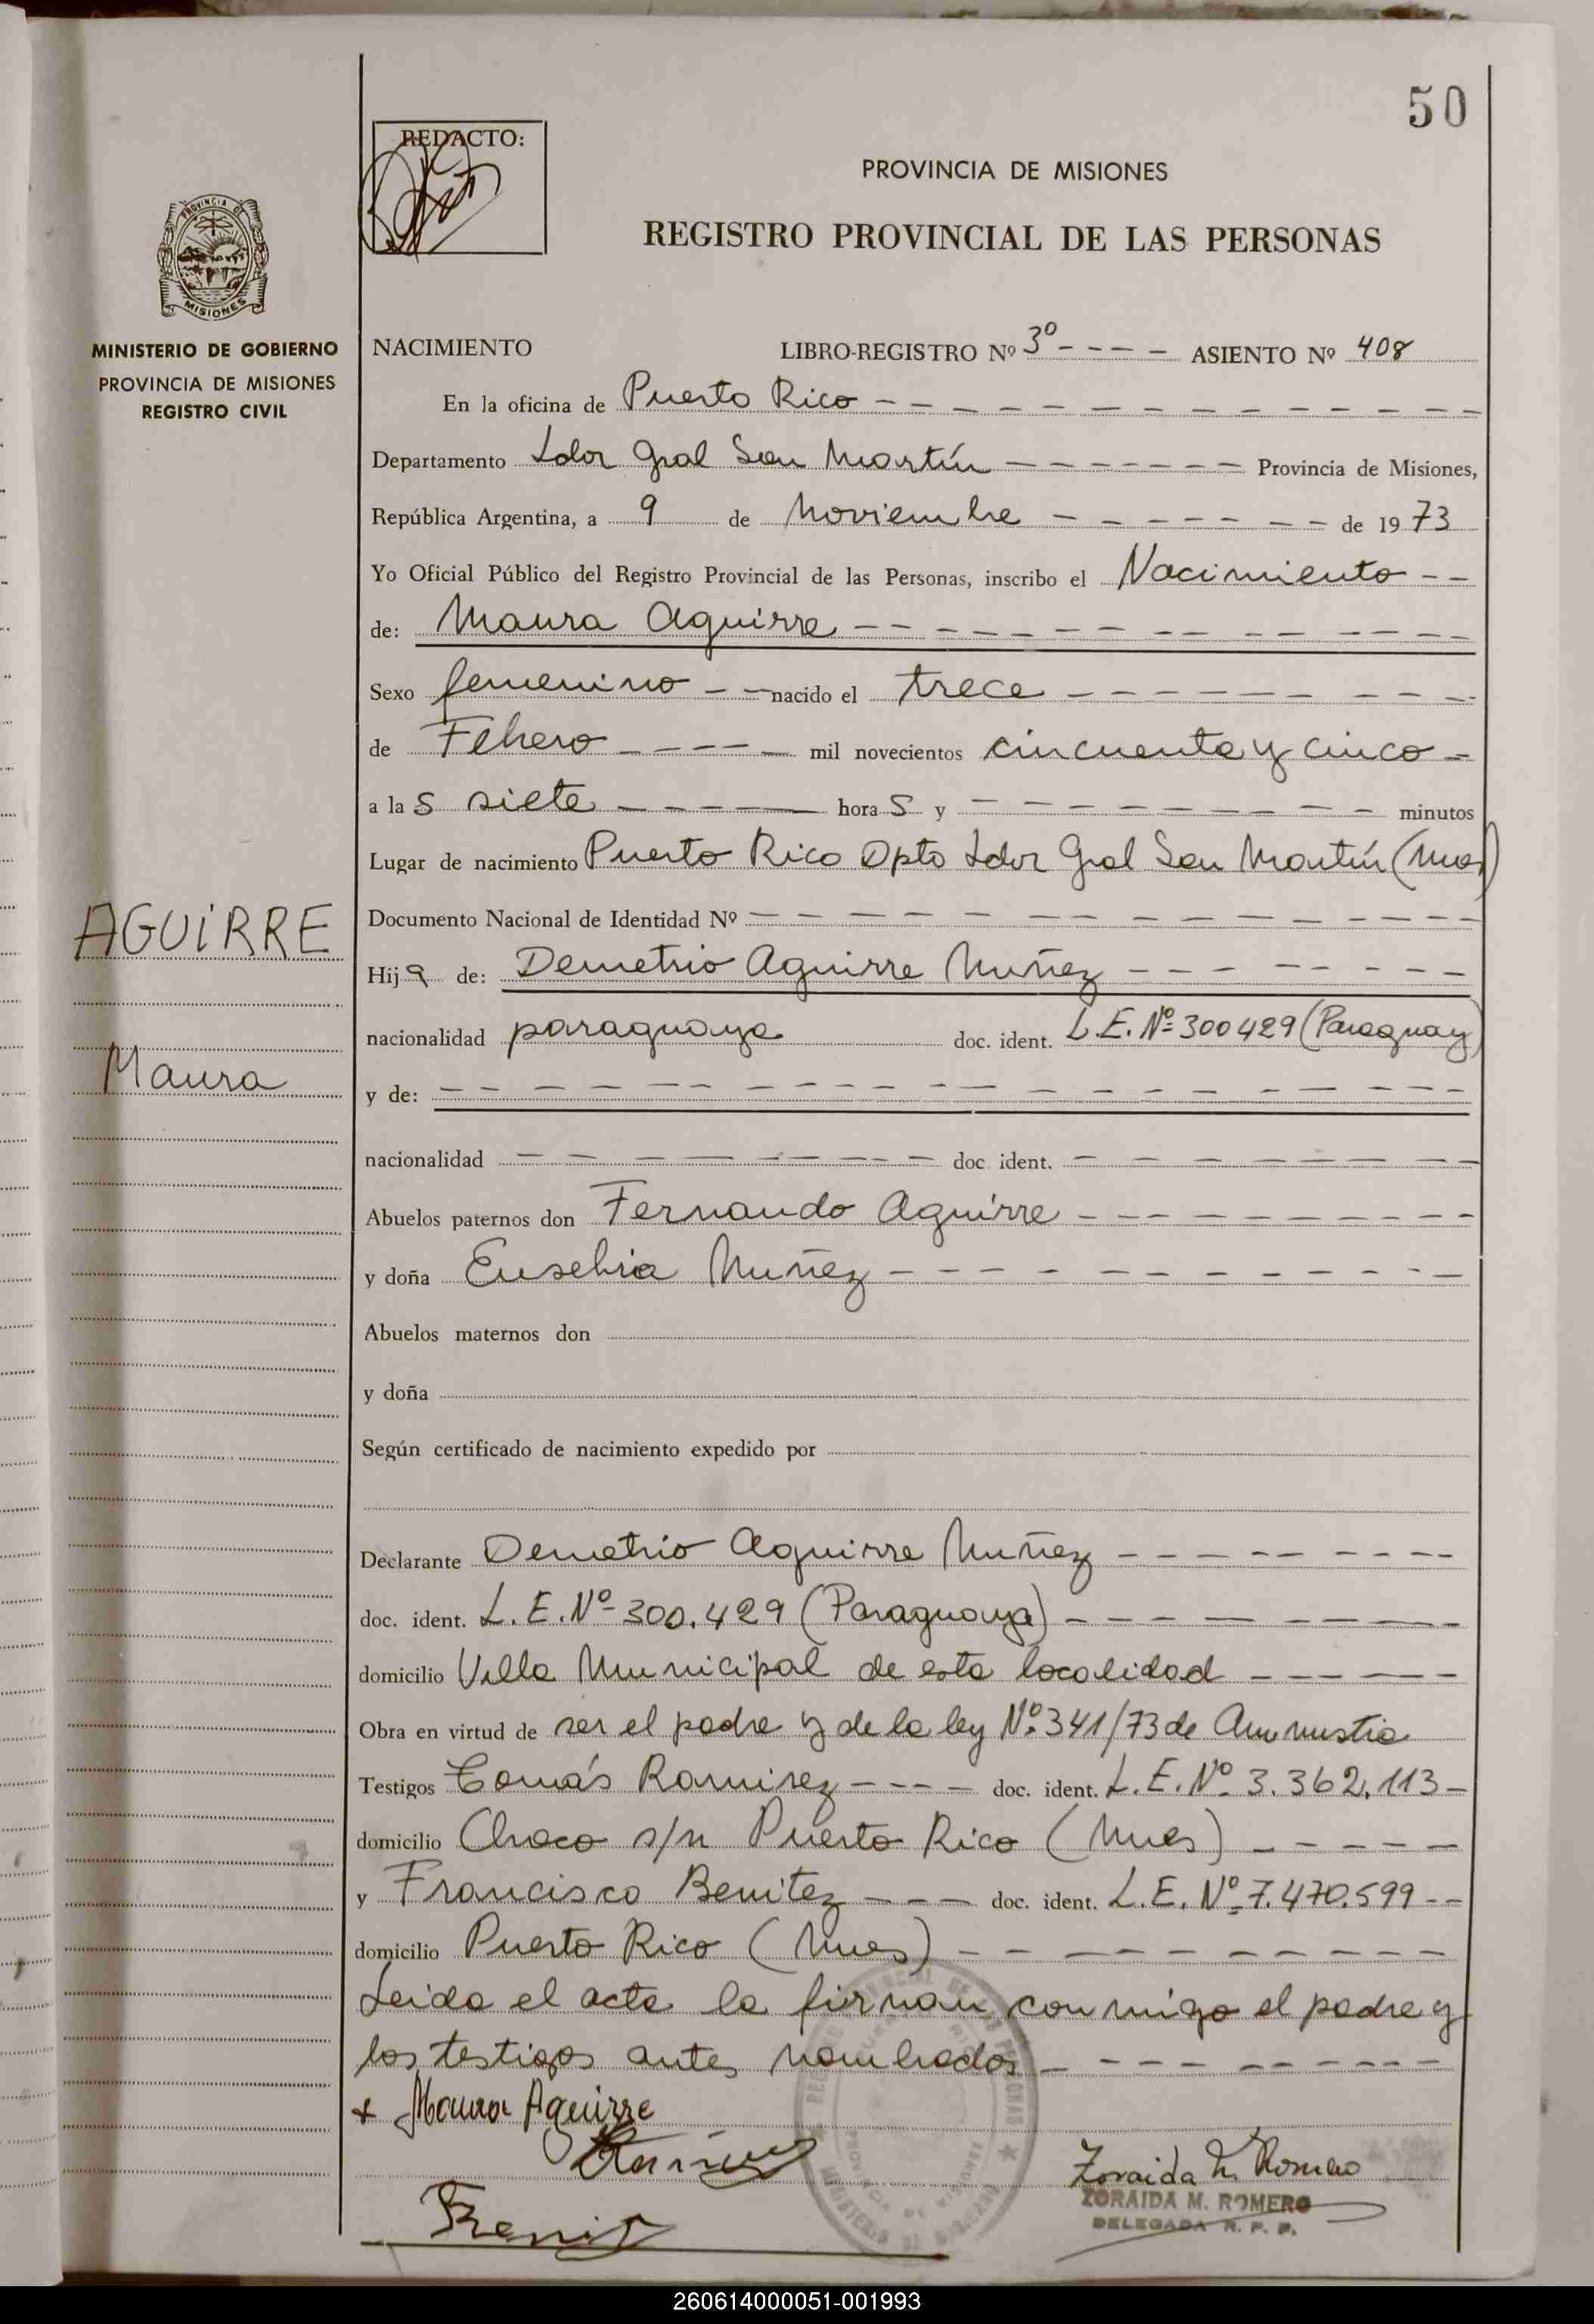 50
REDACTO:
PROVINCIA DE MISIONES
REGISTRO PROVINCIAL DE LAS PERSONAS
PROVINCIA DE
MISIONES
MINISTERIO DE GOBIERNO
PROVINCIA DE MISIONES
REGISTRO CIVIL
AGUIRRE
Maura
NACIMIENTO LIBRO-REGISTRO Nº 3º - - - - ASIENTO Nº 408
En la oficina de Puerto Rico - - - - - - - - - - - - -
Departamento Ldor Gral San Martín - - - - - - - Provincia de Misiones,
República Argentina, a 9 de Noviembre - - - - - - - de 1973
Yo Oficial Público del Registro Provincial de las Personas, inscribo el Nacimiento - -
de: Maura Aguirre - - - - - - - - - - - - -
Sexo femenino - - nacido el trece - - - - - - - - -
de Febrero - - - - - mil novecientos cincuenta y cinco -
a las siete - - - - - horas y - - - - - - - - - minutos
Lugar de nacimiento Puerto Rico Dpto Ldor Gral San Martín (Mnes)
Documento Nacional de Identidad Nº - - - - - - - - - - - - - -
Hija de: Demetrio Aguirre Nuñez - - - - - - - -
nacionalidad paraguaya doc. ident. L.E. Nº 300429 (Paraguay)
y de: - - - - - - - - - - - - - - - - - -
nacionalidad - - - - - - - - - doc. ident. - - - - - - -
Abuelos paternos don Fernando Aguirre - - - - - - - - -
y doña Eusebia Nuñez - - - - - - - - - - - - -
Abuelos maternos don
y doña
Según certificado de nacimiento expedido por
Declarante Demetrio Aguirre Nuñez - - - - - - - - -
doc. ident. L.E. Nº 300.429 (Paraguaya) - - - - - - - -
domicilio Villa Municipal de esta localidad - - - - -
Obra en virtud de ser el padre y de la ley Nº 341/73 de Ammustia
Testigos Tomás Ramirez - - - - doc. ident. L.E. Nº 3.362.113 -
domicilio Chaco s/n Puerto Rico (Mnes) - - - - -
y Francisco Benitez - - - doc. ident. L.E. Nº 7.470.599 - -
domicilio Puerto Rico (Mnes) - - - - - - - - - -
Leida el acta la firman conmigo el padre y
los testigos antes nombrados - - - - - - - - -
+ Maura Aguirre
Zoraida M. Romero
ZORAIDA M. ROMERO
DELEGADA R. P. P.
260614000051-001993